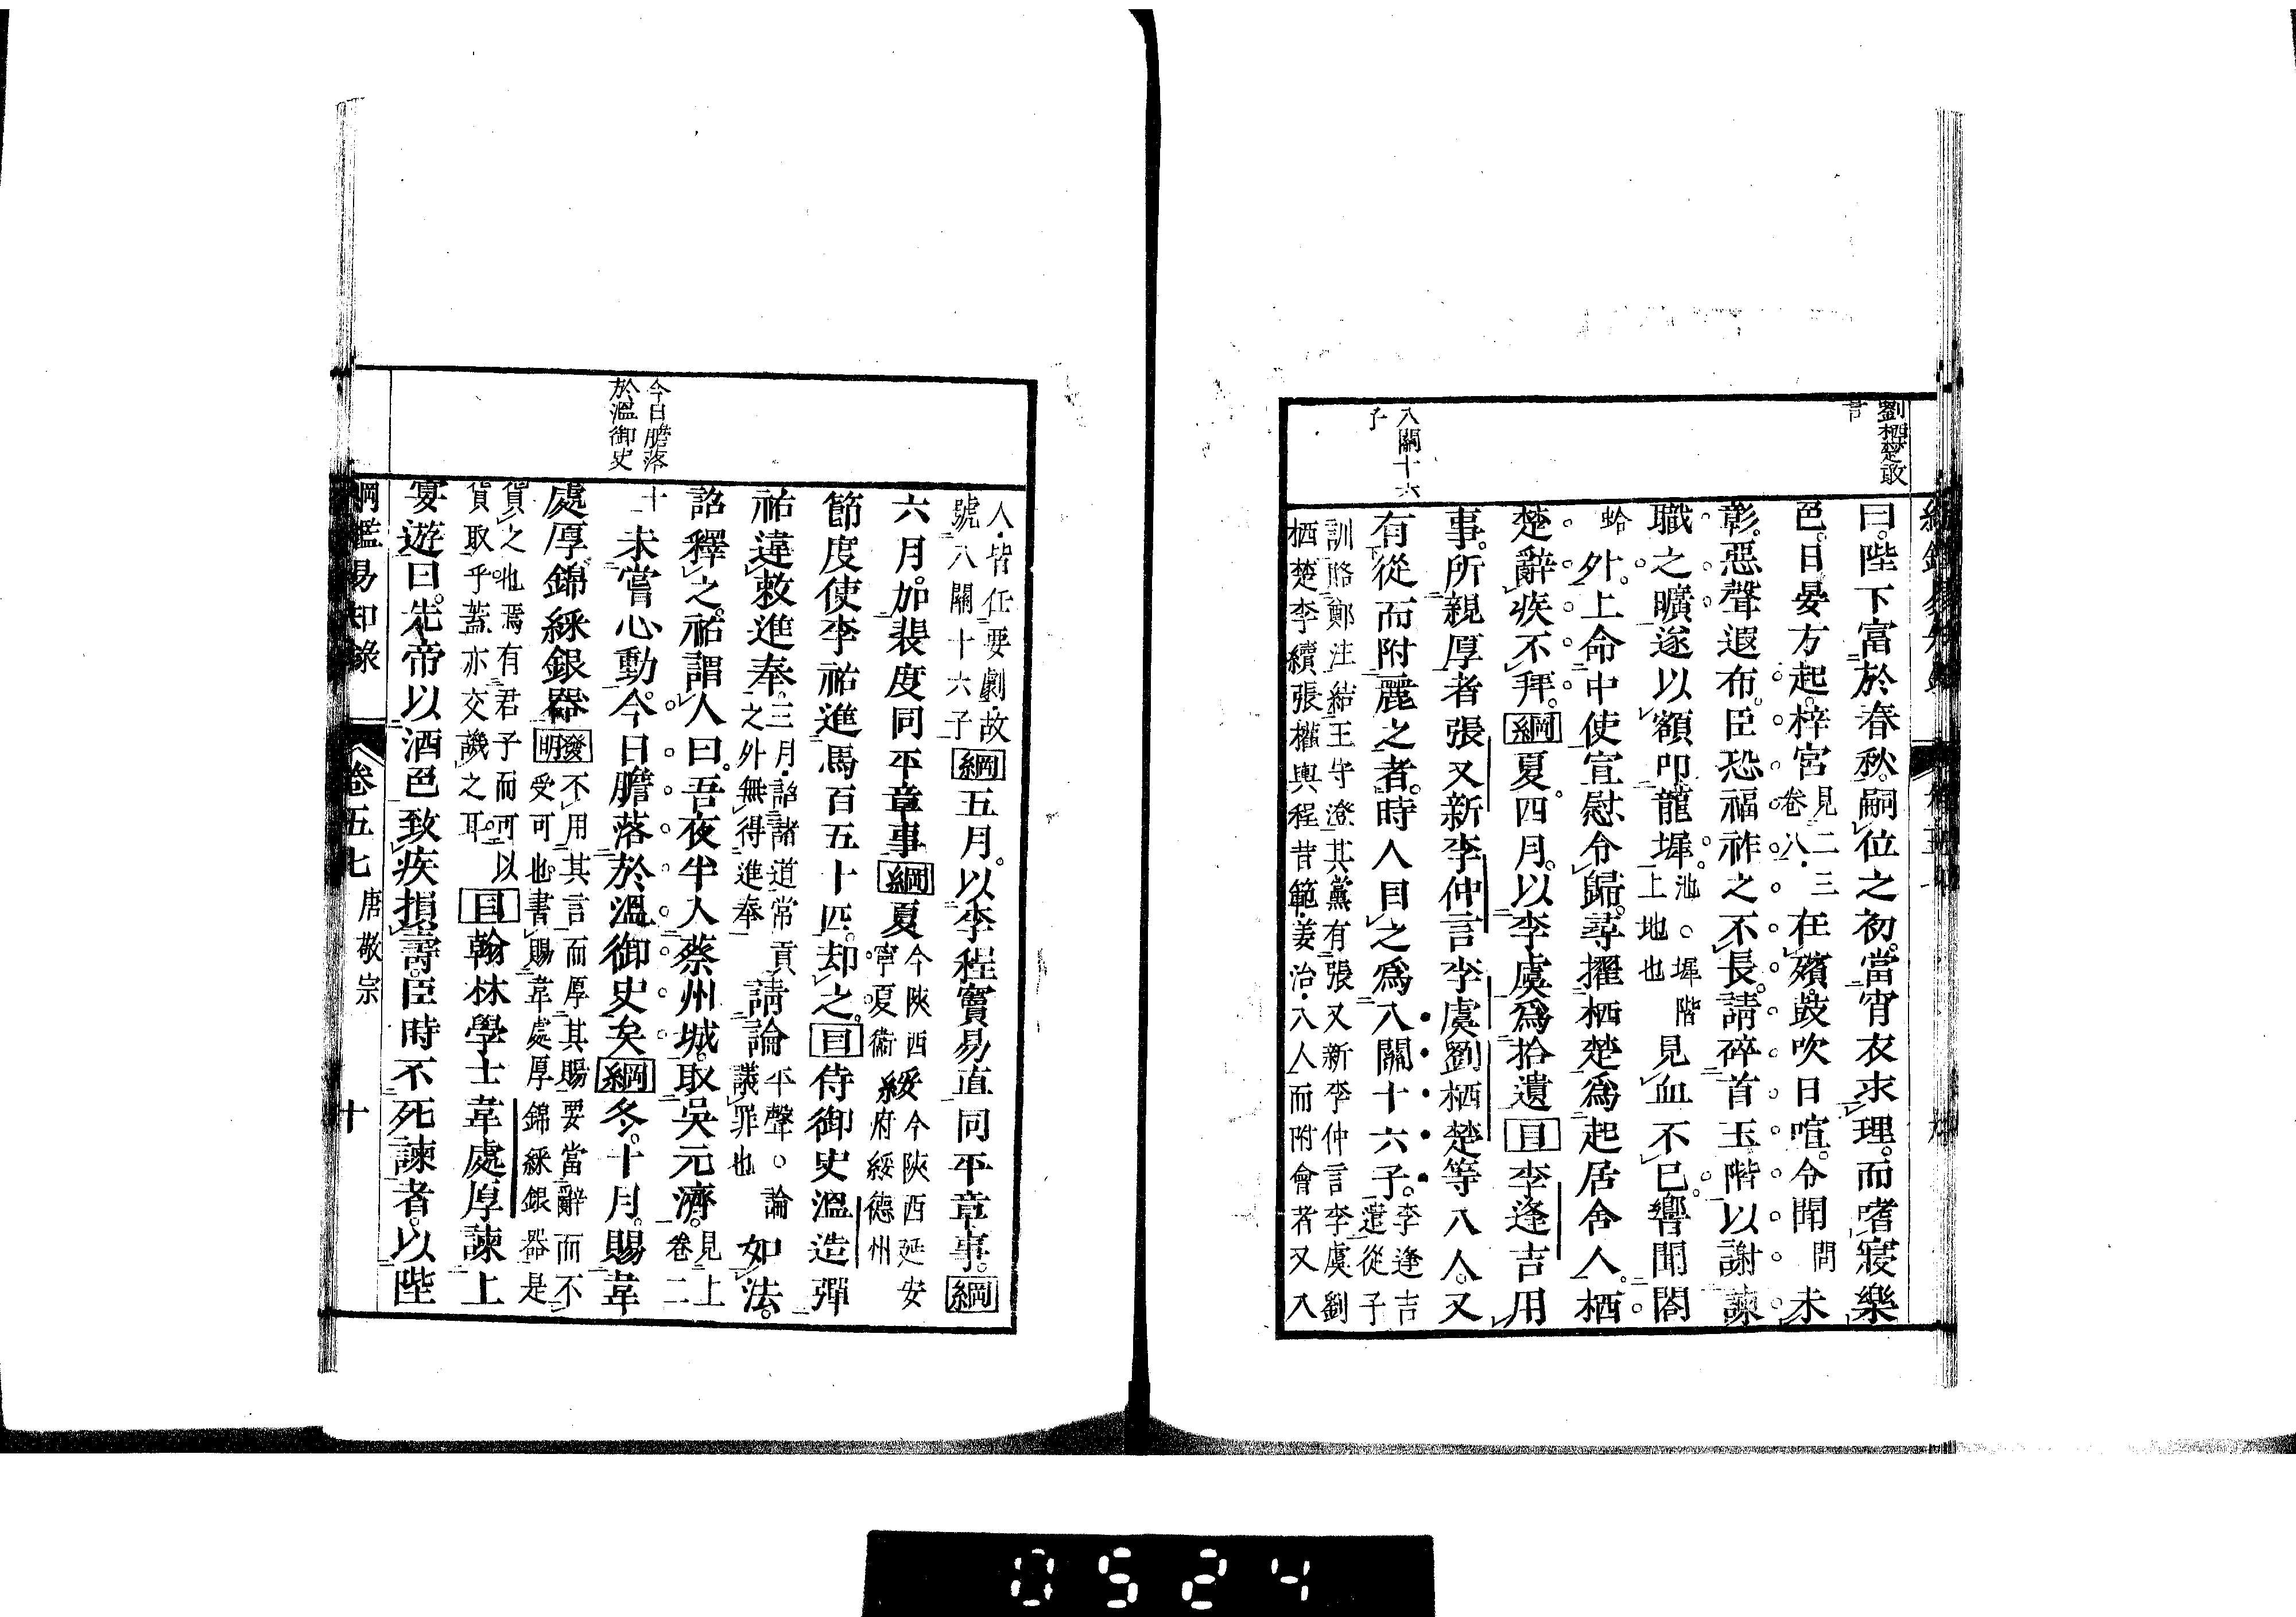 劉栖楚敢
言
曰陛下富於春秋嗣位之初當宵衣求理而嗜寢樂
色日晏方起梓宮見二三卷八在殯鼓吹日喧令聞間未
彰惡聲遐布臣恐福祚之不長請碎首玉階以謝諫
職之曠遂以額叩龍墀池○墀階上地也見血不已響聞閤
蛤外上命中使宣慰令歸尋擢栖楚爲起居舍人栖
楚辭疾不拜綱夏四月以李虞爲拾遺目李逢吉用
事所親厚者張又新李仲言李虞劉栖楚等八人又
有從而附麗之者時人目之爲八關十六子李逢吉遣從子
訓賂鄭注結王守澄其黨有張又新李仲言李虞劉
栖楚李續張權輿程昔範姜治八人而附會者又八
八關十六
子
人皆任要劇故
號八關十六子綱五月以李程竇易直同平章事綱
六月加裴度同平章事綱夏今陝西寧夏衞綏今陝西延安府綏德州
節度使李祐進馬百五十匹却之目侍御史溫造彈
祐違敕進奉三月詔諸道常貢之外無得進奉請論平聲○論議罪也如法
詔釋之祐謂人曰吾夜半入蔡州城取吳元濟見上卷二
十一未嘗心動今日膽落於溫御史矣綱冬十月賜韋
處厚錦綵銀器發明不用其言而厚其賜要當辭而不受可也書賜韋處厚錦綵銀器是
貨之也焉有君子而可以
貨取乎蓋亦交譏之耳目翰林學士韋處厚諫上
宴遊曰先帝以酒色致疾損壽臣時不死諫者以陛
今日膽落
於溫御史
綱鑑易知錄
卷五七
唐敬宗
十
0524